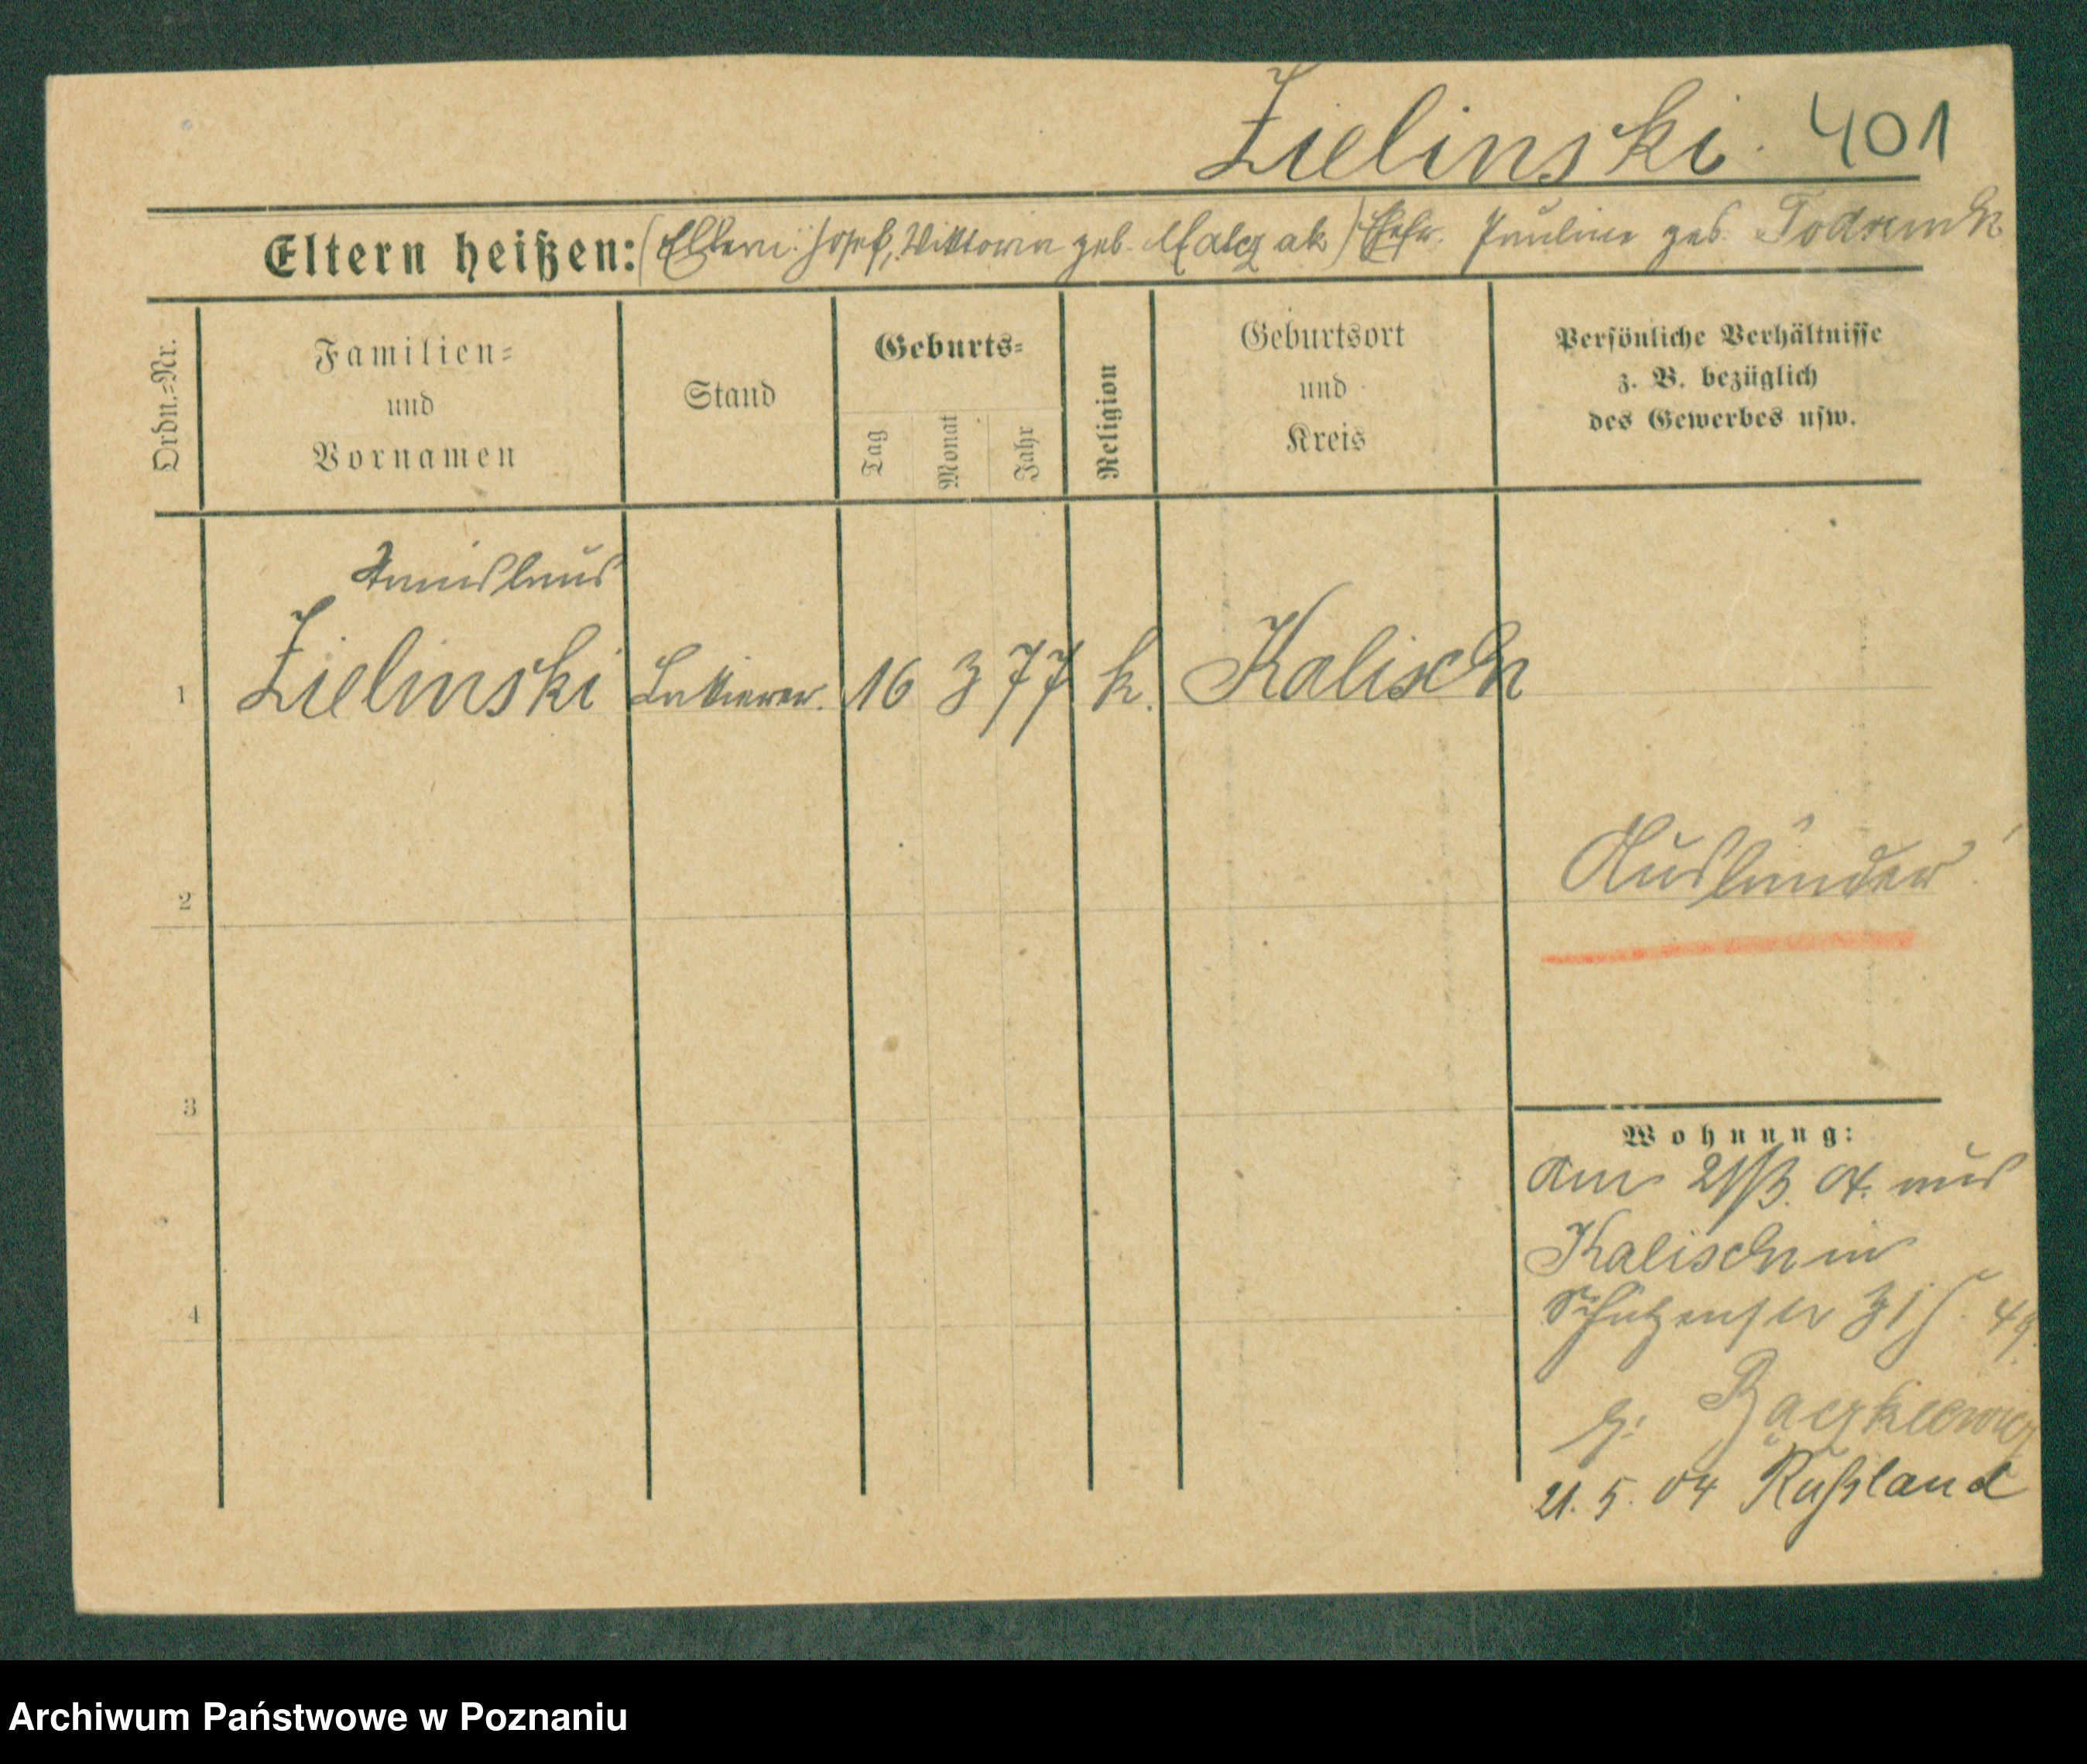 Zielinski. 401
Eltern heißen: (Eltern: Josef, Viktoria geb. Malczak) Ehefr. Pauline geb.
Ordn.=Nr.
Familien=
und
Vornamen
Stand
Geburts=
Tag
Monat
Jahr
Religion
Geburtsort
und
Kreis
Persönliche Verhältnisse
z. B. bezüglich
des Gewerbes usw.
Stanislaus
1 Zielinski Lakierer. 16 3 77 k. Kalisch
2
Ausländer!
3
4
Wohnung:
Am 21/3. 04. aus
Kalisch in
Schützenstr 31
b. Bączkiewicz
21. 5. 04 Rußland
Archiwum Państwowe w Poznaniu